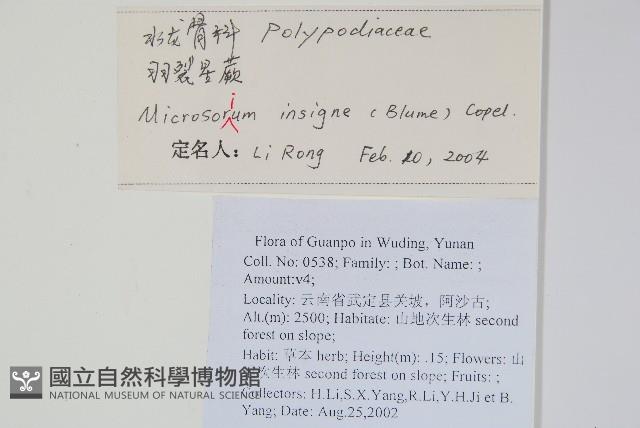 水龙骨科 Polypodiaceae
羽裂星蕨
Microsorum insigne (Blume) Copel.
i
定名人: Li Rong Feb. 20, 2004
Flora of Guanpo in Wuding, Yunan
Coll. No: 0538; Family: ; Bot. Name: ;
Amount:v4;
Locality: 云南省武定县关坡，阿沙古;
Alt.(m): 2500; Habitate: 山地次生林 second
forest on slope;
Habit: 草本 herb; Height(m): .15; Flowers: 山
次生林 second forest on slope; Fruits: ;
Collectors: H.Li,S.X.Yang,R.Li,Y.H.Ji et B.
Yang; Date: Aug.25,2002
國立自然科學博物館
NATIONAL MUSEUM OF NATURAL SCIENCE